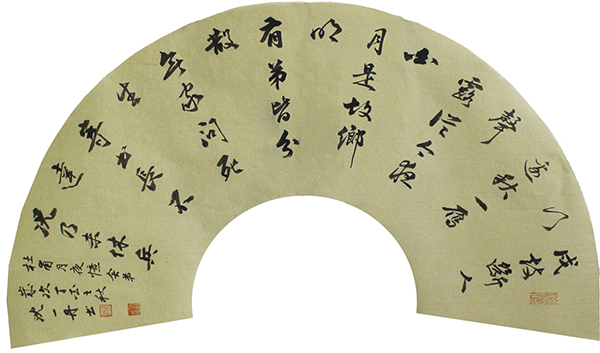 戍鼓斷人
行
邊秋一雁
聲
露從今夜
白
月是故鄉
明
有弟皆分
散
無家問死
生
寄書長不
達
況乃未休兵
杜甫月夜憶舍弟
歲次丁之秋
沈一丹書